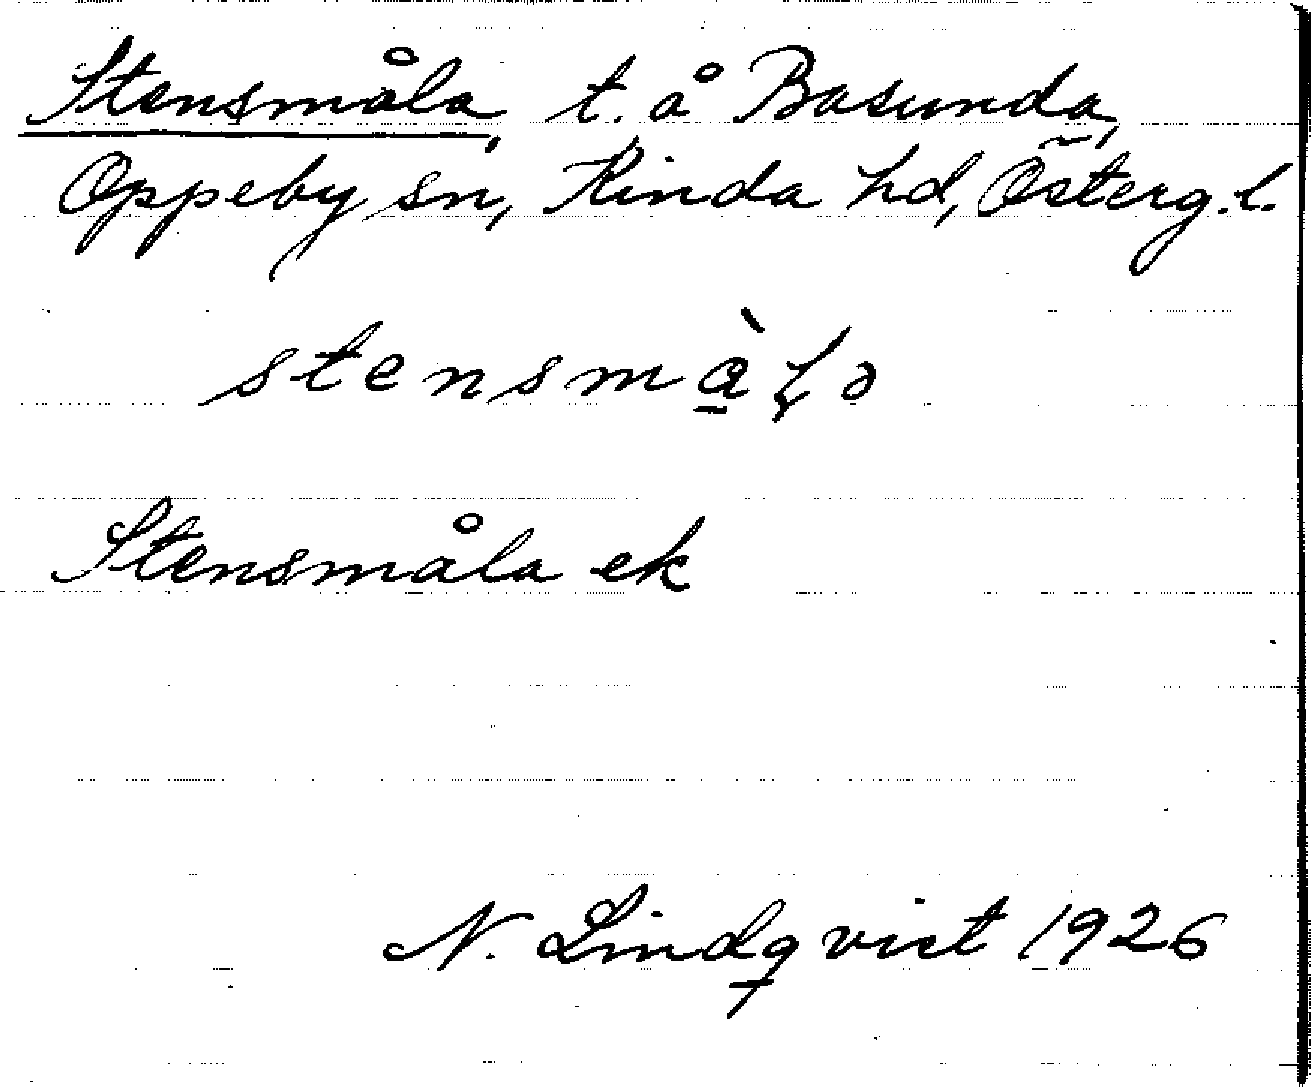 Stensmåla, t. å Basunda,
Oppeby sn, Kinda hd, Österg. l.
stensmàl̨ə
Stensmåla ek
N. Lindqvist 1926